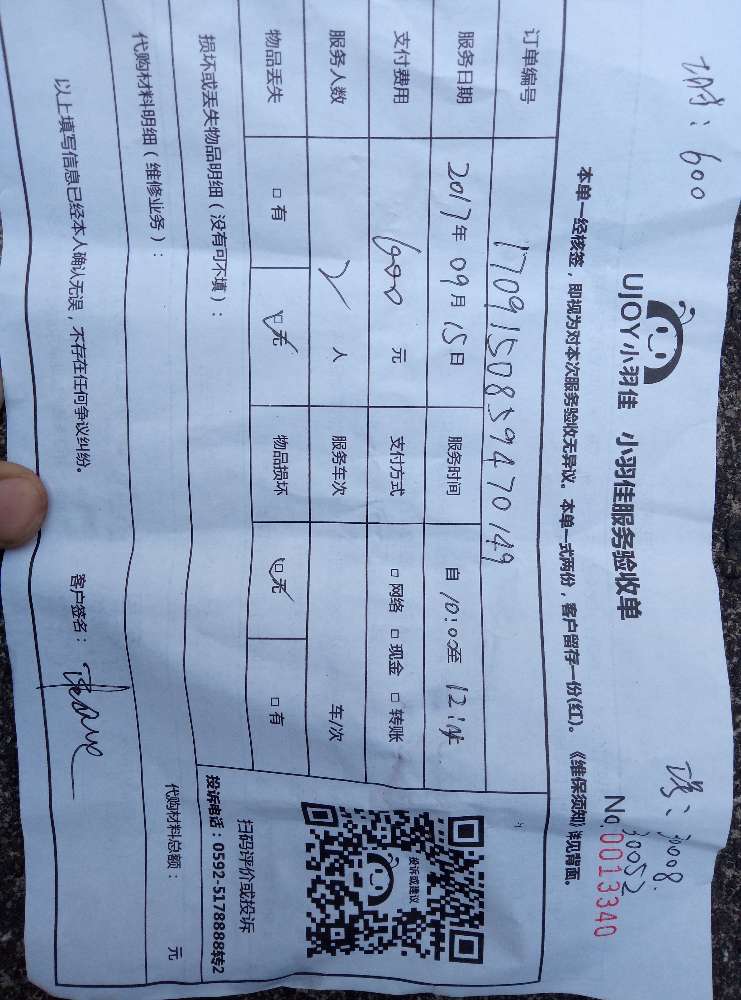 UJOY小羽佳 小羽佳服务验收单
No.0013340
本单一经核签，即视为对本次服务验收无异议。本单一式两份，客户留存一份(红)。《维保须知》详见背面。
订单编号 1709150859470149
服务日期 2017年09月15日 服务时间 自10:00至12:
支付费用 600元 支付方式 □网络 □现金 □转账
服务人数 2人 服务车次 车/次
物品丢失 □有 □无 物品损坏 □无 □有
损坏或丢失物品明细（没有可不填）：
代购材料明细（维修业务）：
代购材料总额： 元
以上填写信息已经本人确认无误，不存在任何争议纠纷。 客户签名：
投诉或建议
扫码评价或投诉
投诉电话：0592-5178888转2
600
30008.
30052